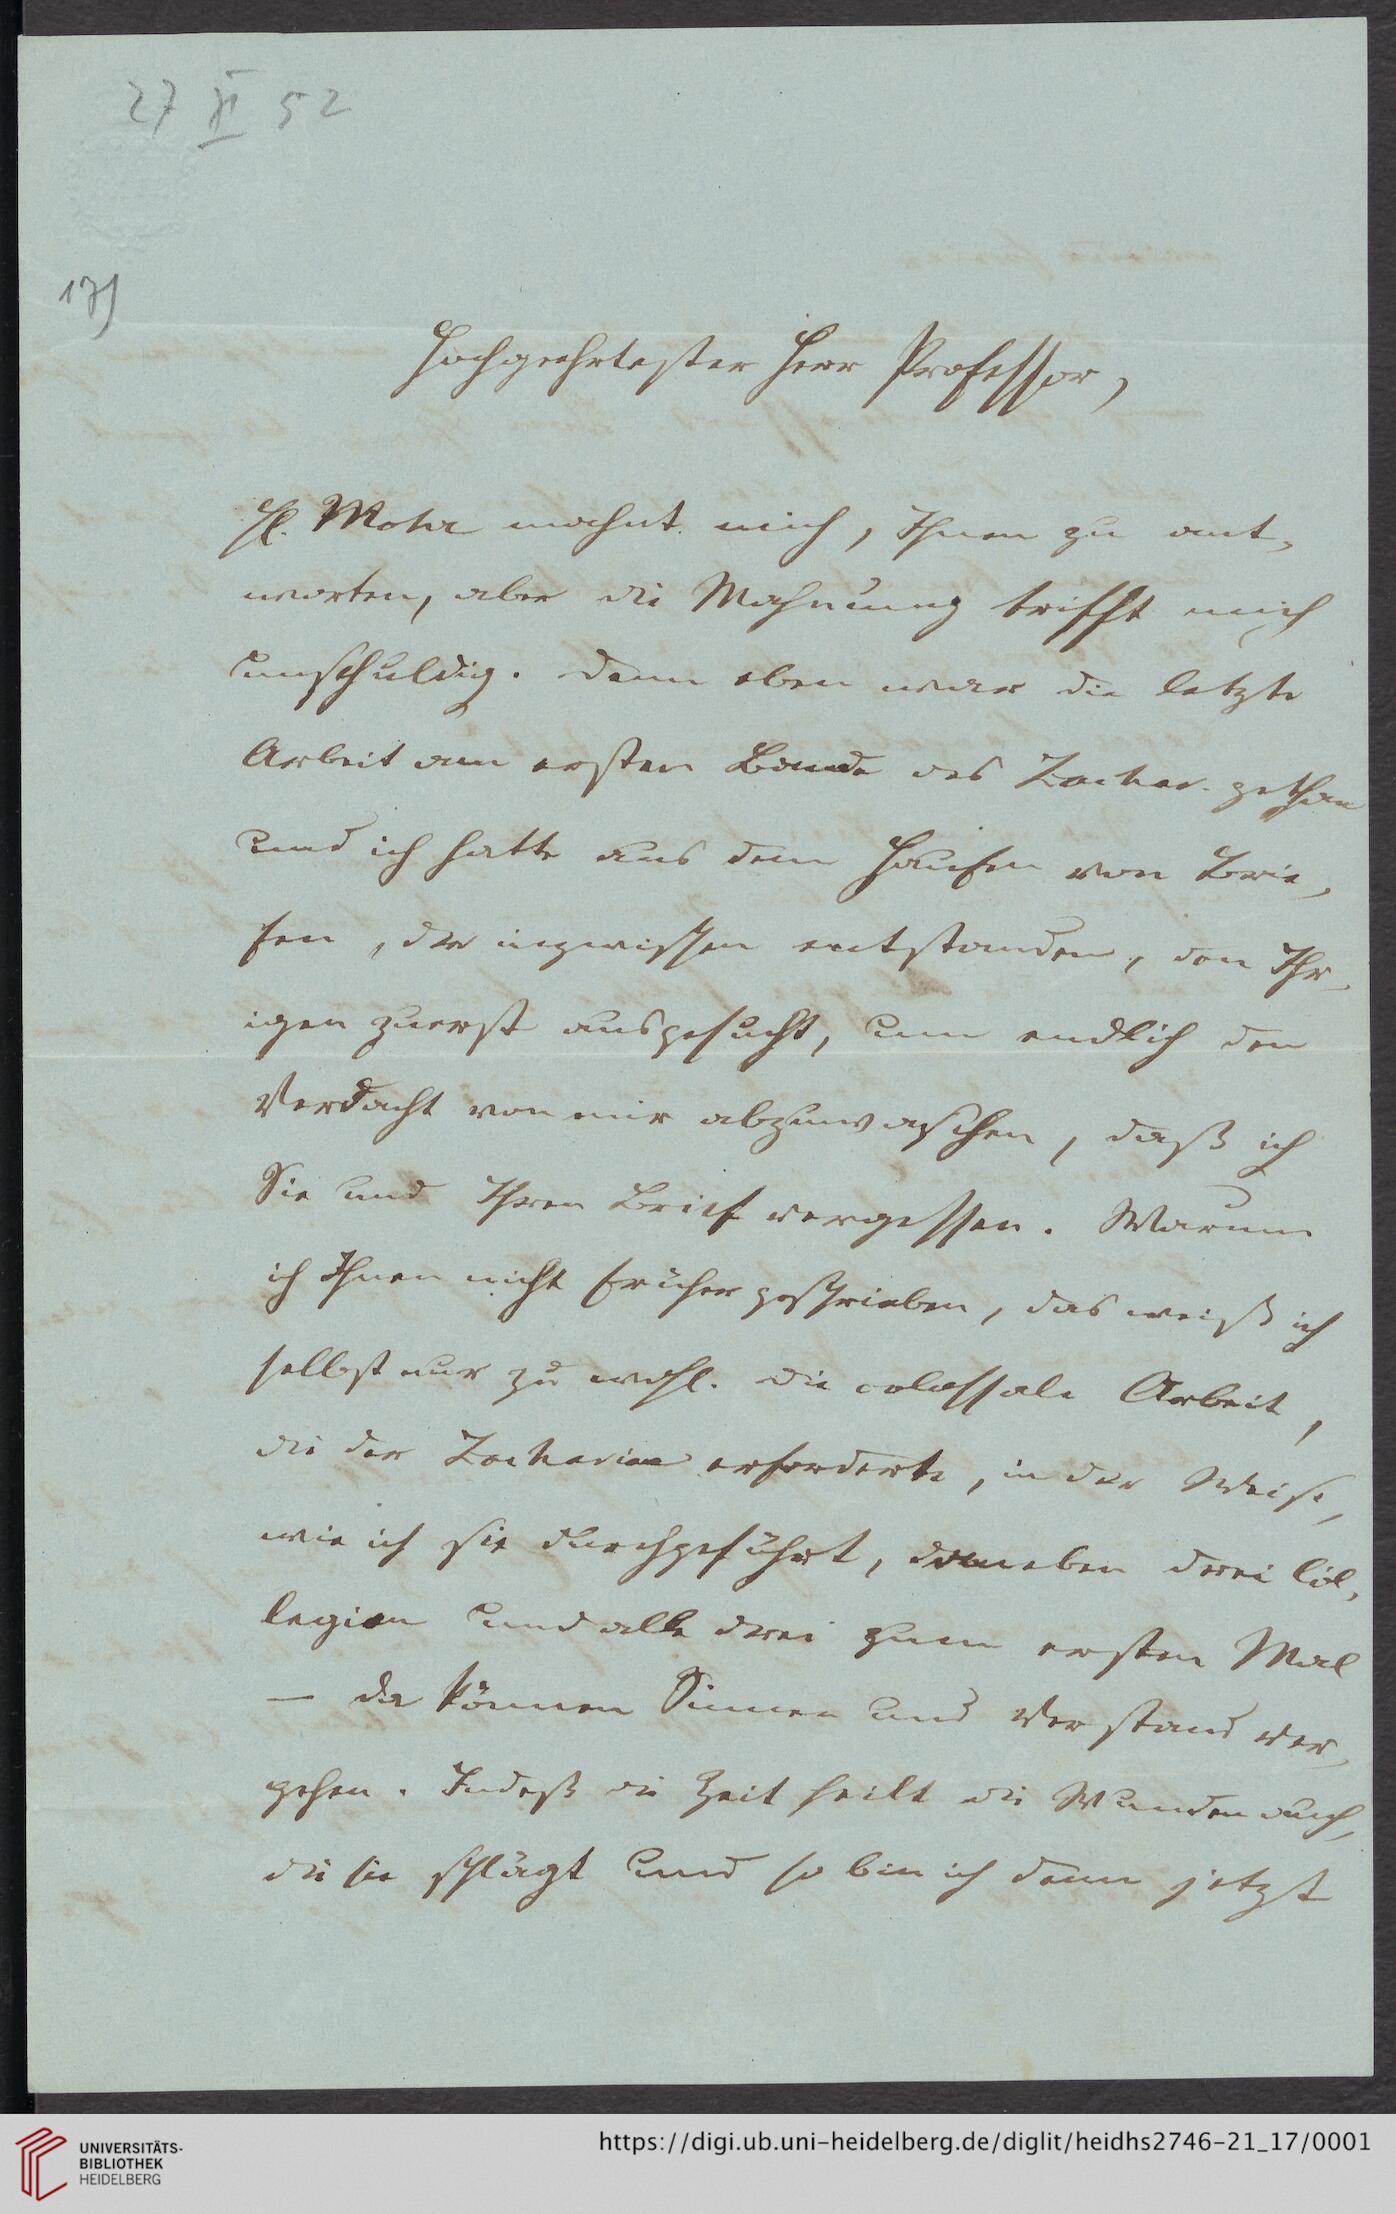 27 XI 52
17)
Hochgeehrtester Herr Professor,
H. Mohr mahnt mich, Ihnen zu ant-
worten, aber die Mahnung trifft mich
unschuldig. Denn eben war die letzte
Arbeit am ersten Bande des Zachar. gethan
und ich hatte aus dem Haufen von Brie-
fen, der inzwischen entstanden, den Ihr-
igen zuerst ausgesucht, um endlich den
Verdacht von mir abzuwaschen, daß ich
Sie und Ihren Brief vergessen. Warum
ich Ihnen nicht früher geschrieben, das weiß ich
selbst nur zu wohl. Die colossale Arbeit,
die der Zachariae erforderte, in der Weise,
wie ich sie durchgeführt, daneben drei Col-
legien und alle drei zum ersten Mal
— da können Sinnen und Verstand ver-
gehen. Indeß die Zeit heilt die Wunden auch,
die sie schlägt und so bin ich denn jetzt
UNIVERSITÄTS-
BIBLIOTHEK
HEIDELBERG
https://digi.ub.uni-heidelberg.de/diglit/heidhs2746-21_17/0001